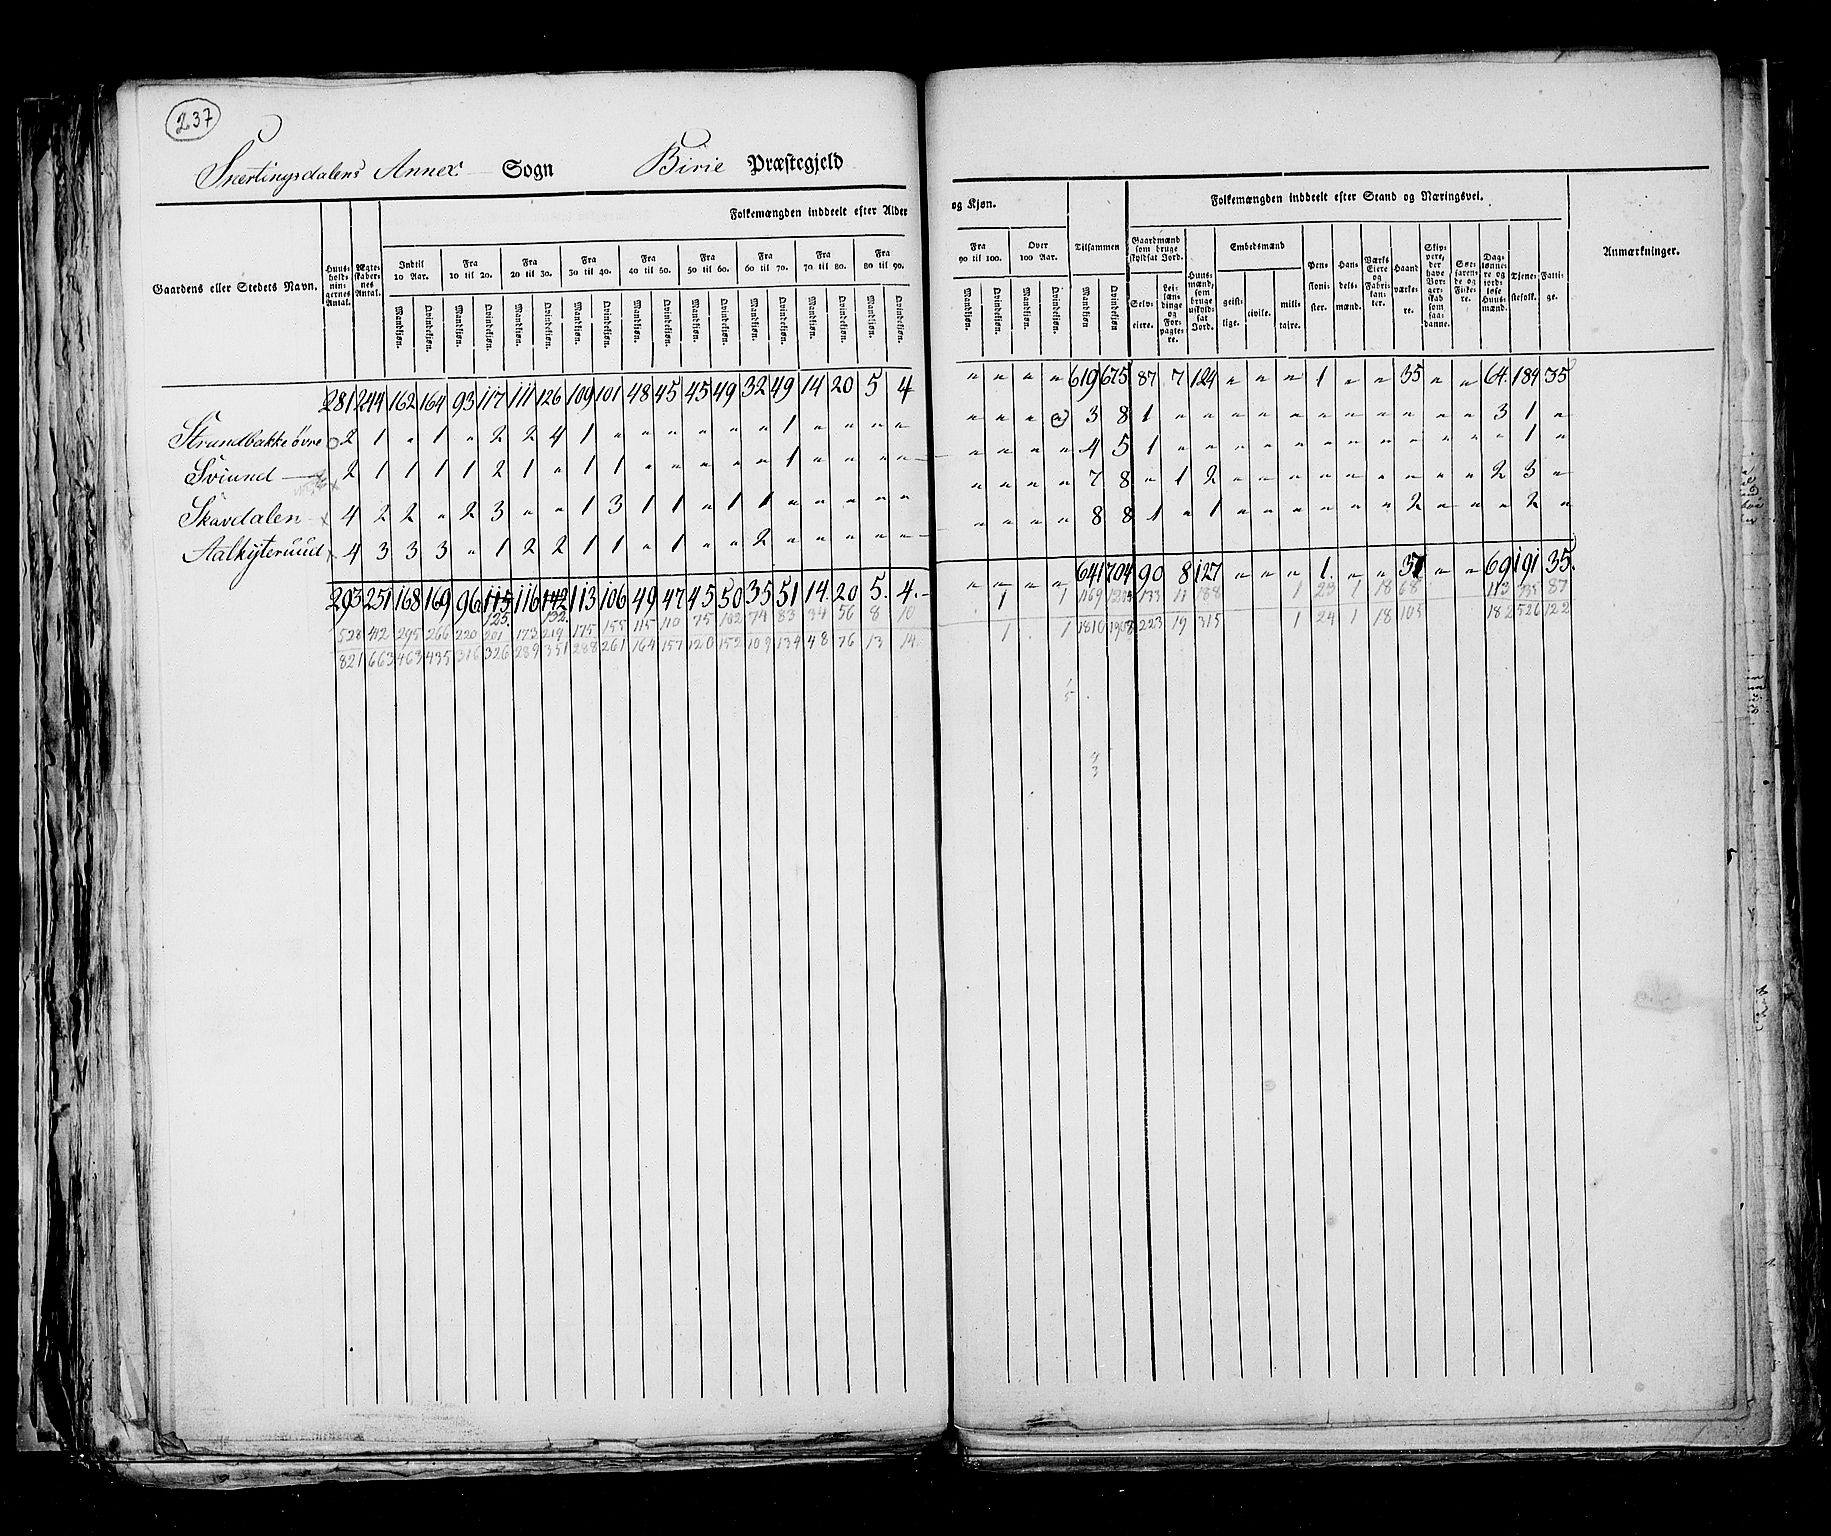 237
Snertingsdalens Annex Sogn Birie Præstegjeld
Gaardens eller Stedets Navn.
Huusholdningernes Antal.
Ægteskabernes Antal.
Folkemængden inddeelt efter Alder og Kjøn.
Indtil 10 Aar. Fra 10 til 20. Fra 20 til 30. Fra 30 til 40. Fra 40 til 50. Fra 50 til 60. Fra 60 til 70. Fra 70 til 80. Fra 80 til 90. Fra 90 til 100. Over 100 Aar. Tilsammen
Mandkjøn. Qvindekjøn. Mandkjøn. Qvindekjøn. Mandkjøn. Qvindekjøn. Mandkjøn. Qvindekjøn. Mandkjøn. Qvindekjøn. Mandkjøn. Qvindekjøn. Mandkjøn. Qvindekjøn. Mandkjøn. Qvindekjøn. Mandkjøn. Qvindekjøn. Mandkjøn. Qvindekjøn. Mandkjøn. Qvindekjøn. Mandkjøn Qvindekjøn
Folkemængden inddeelt efter Stand og Næringsvei.
Gaardmænd som bruge skyldsat Jord. Selveiere. Leilændinge og Forpagtere.
Huusmænd, som bruge uskyldsat Jord.
Embedsmænd geistlige. civile. militaire.
Pensionister.
Handelsmænd.
Værks Eiere og Fabrikanter.
Haandværkere.
Skippere, der have Borgerskab som saadanne.
Søefarende og Fiskere.
Daglønnere og jordløse Huusmænd.
Tjenestefolk.
Fattige.
Anmærkninger.
281 244 162 164 93 117 111 126 109 101 48 45 45 49 32 49 14 20 5 4 " " " " 619 675 87 7 124 " " " 1 " " 35 " " 64. 184 35
Strandbakke øvre 2 1 " 1 " 2 2 4 1 " " " " " " 1 " " " " " " " " 3 8 1 " " " " " " " " " " " 3 1 "
Sviund 2 1 1 1 1 2 1 " 1 1 " " " " " 1 " " " " " " " " 4 5 1 " " " " " " " " " " " " 1 "
Skavdalen 4 2 2 " 2 3 " " 1 3 1 1 " 1 1 " " " " " " " " " 7 8 " 1 2 " " " " " " " " " 2 3 "
Aalkysteruud 4 3 3 3 " 1 2 2 1 1 " 1 " " 2 " " " " " " " " " 8 8 1 " 1 " " " " " " 2 " " " 2 "
293 251 168 169 96 115 116 142 113 106 49 47 45 50 35 51 14. 20 5. 4. " " " " 641 704 90 8 127 " " " 1. " " 37 " " 69 191 35.
125. 132.
528 412 295 266 220 201 173 219 175 155 115 110 75 102 74 83 34 56 8 10 1 1 1169 1204 133 11 188 1 23 1 18 68 113 335 87
821 663 463 435 316 326 289 351 288 261 164 157 120 152 109 134 48 76 13 14. 1. 1 1810 1908 223 19 315 1 24 1 18 105 182 526 122